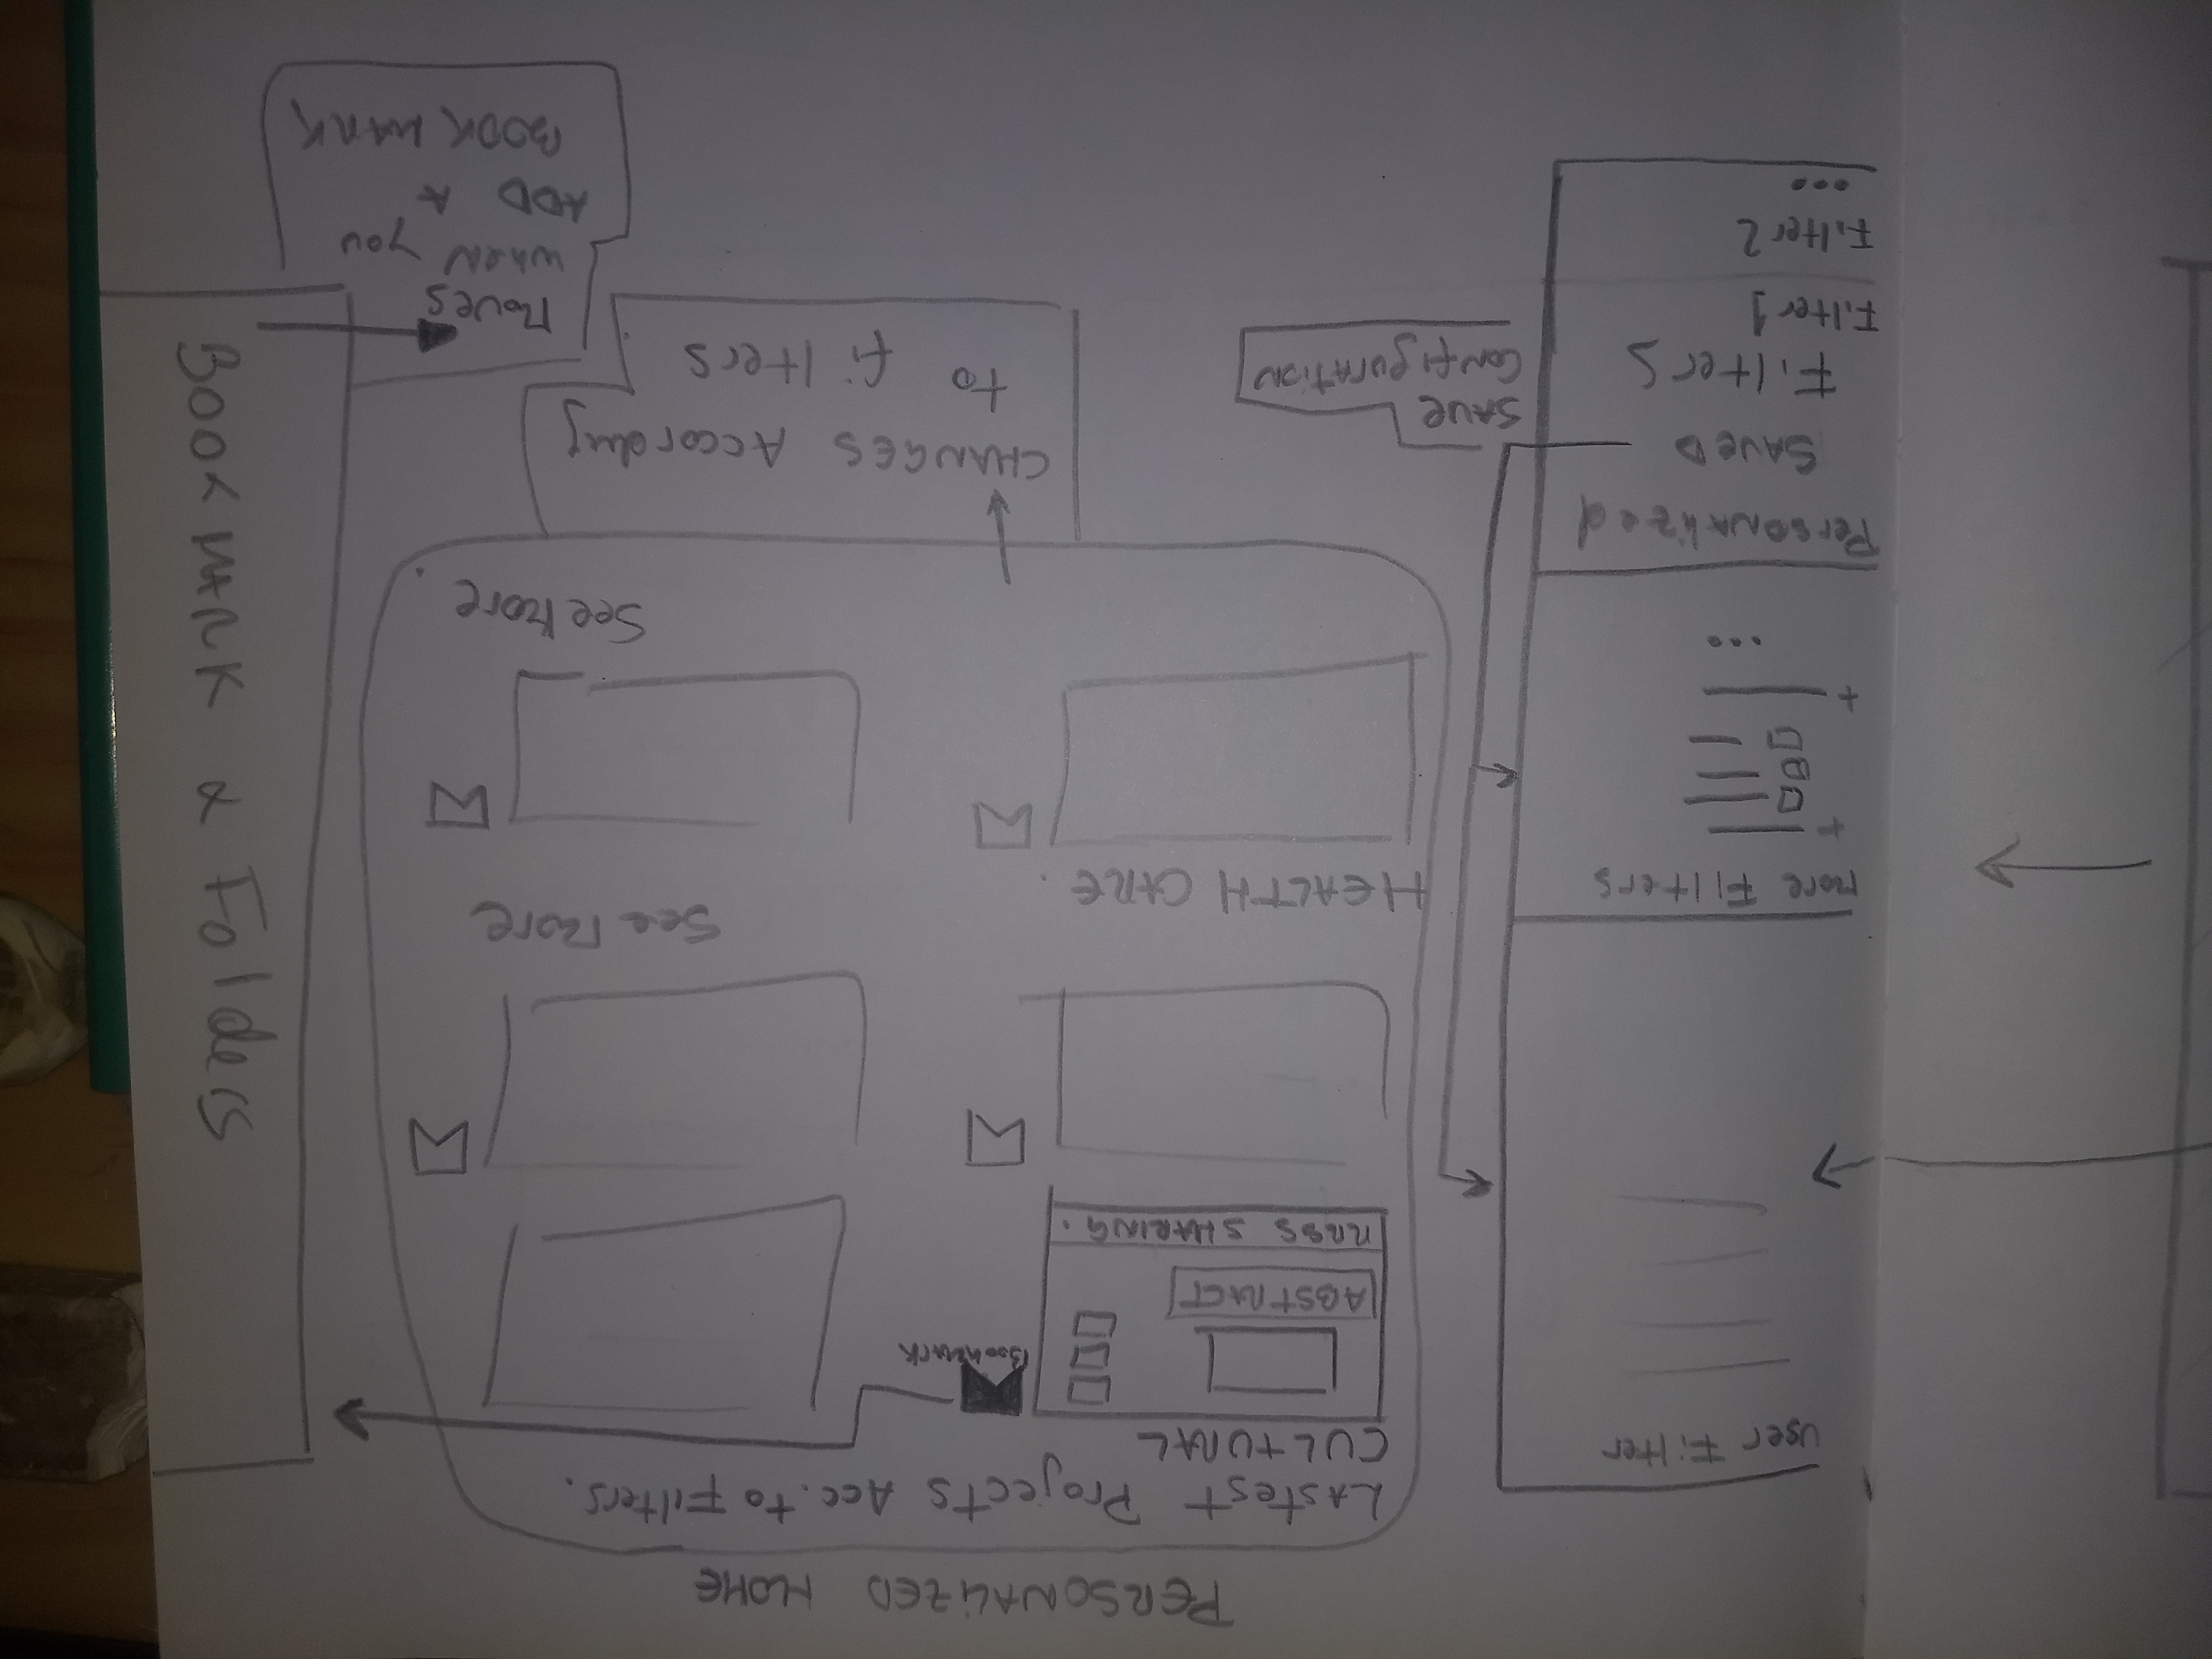 PERSONALIZED HOME
User Filter
More Filters
Personalized
SAVED
Filters
Filter 1
Filter 2
...
SAVE
CONfigURATION
LAstest Projects Acc. to Filters.
CULTURAL
BookMARK
ABSTRACT
RRSS SHARING.
See More
HEALTH CARE.
See More
CHANGES According
to filters
BOOKMARK & Folders
Moves
wHEN you
ADD A
BOOKMARK